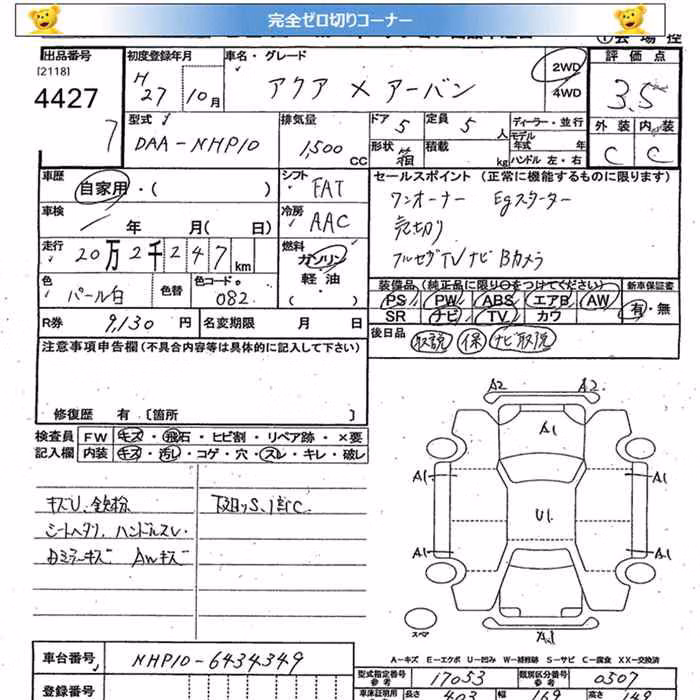 完全ゼロ切りコーナー
出品番号
[2118]
4427
7
初度登録年月
H 27 10月
車名・グレード
アクア X アーバン
2WD
4WD
評価点
3.5
外装 内装
C C
型式
DAA-NHP10
排気量
1,500 CC
ドア 5
形状 箱
定員 5 人
積載 kg
ディーラー・並行
モデル年式 年
ハンドル 左・右
車歴
自家用・( )
シフト FAT
車検
年 月(日)
冷房 AAC
走行
20万2千247km
燃料
ガソリン
軽油
( )
色
パール白
色替
色コードNo.
082
R券 9,130円
名変期限 月 日
セールスポイント (正常に機能するものに限ります)
ワンオーナー Egスターター
売切り
フルセグTVナビ Bカメラ
装備品 (純正品に限り○をつけてください)
PS PW ABS エアB AW
SR ナビ TV カワ
新車保証書
有・無
後日品
取説 保 ナビ取説
注意事項申告欄 (不具合内容等は具体的に記入して下さい)
修復歴 有 〔箇所 〕
検査員記入欄
FW キズ・飛石・ヒビ割・リペア跡・×要
内装 キズ・汚し・コゲ・穴・スレ・キレ・破レ
キズU、鉄粉
シートヘタリ、ハンドルスレ
下廻りS、1部C
AWキズ
A2 A2
A1
A1 A1
U1
A1 A1
A1
スペア
A－キズ E－エクボ U－凹み W－補修跡 S－サビ C－腐食 XX－交換済
車台番号
NHP10-6434349
登録番号
型式指定番号 参考
17053
類別区分番号 参考
0307
長さ 403
幅 169
高さ 149